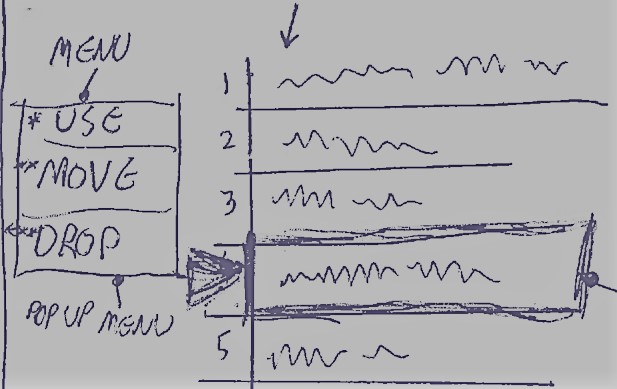 MENU
* USE
** MOVE
*** DROP
POPUP MENU
1
2
3
5